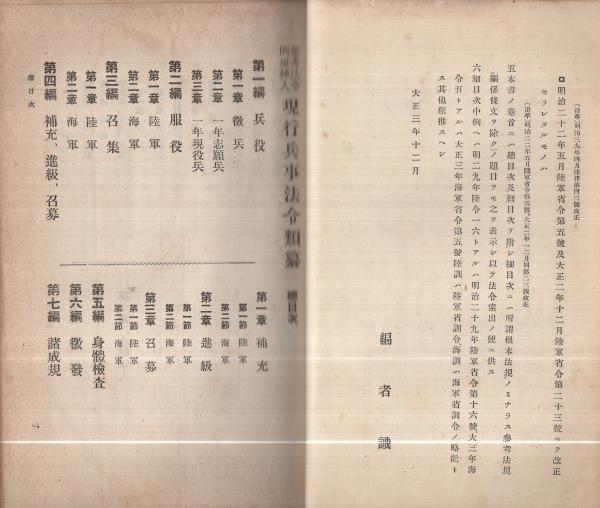 （沿革）明治三九年四月法律第四三號改正
明治二十二年五月陸軍省令第五號及大正二年十二月陸軍省令第二十三號ヲ以テ改正
セラレタルモノハ
（沿革）明治二二年五月陸軍省令第五號、大正二年一二月同第二三號改正
五本書ノ卷首ニハ總目次及細目次ヲ附シ細目次ニハ所謂根本法規ノミナラス參考法規
關係條文ヲ除クノ題目ヲモ之ヲ表示シ以テ法令索出ノ便ニ供ス
六細目次中例ヘハ明二九年陸令一六トアルハ明治二十九年陸軍省令第十六號、大三年海
令五トアルハ大正三年海軍省令第五號陸訓ハ陸軍省訓令海訓ハ海軍省訓令ノ略記ト
ス其他類推スヘシ
大正三年十二月
編者識
參考法令
例規挿入
現行兵事法令類纂
總目次
第一編 兵役
第一章 徵兵
第二章 一年志願兵
第三章 一年現役兵
第二編 服役
第一章 陸軍
第二章 海軍
第三編 召集
第一章 陸軍
第二章 海軍
第四編 補充、進級、召募
第一章 補充
第一節 陸軍
第二節 海軍
第二章 進級
第一節 陸軍
第二節 海軍
第三章 召募
第一節 陸軍
第二節 海軍
第五編 身體檢查
第六編 徵發
第七編 諸成規
總目次